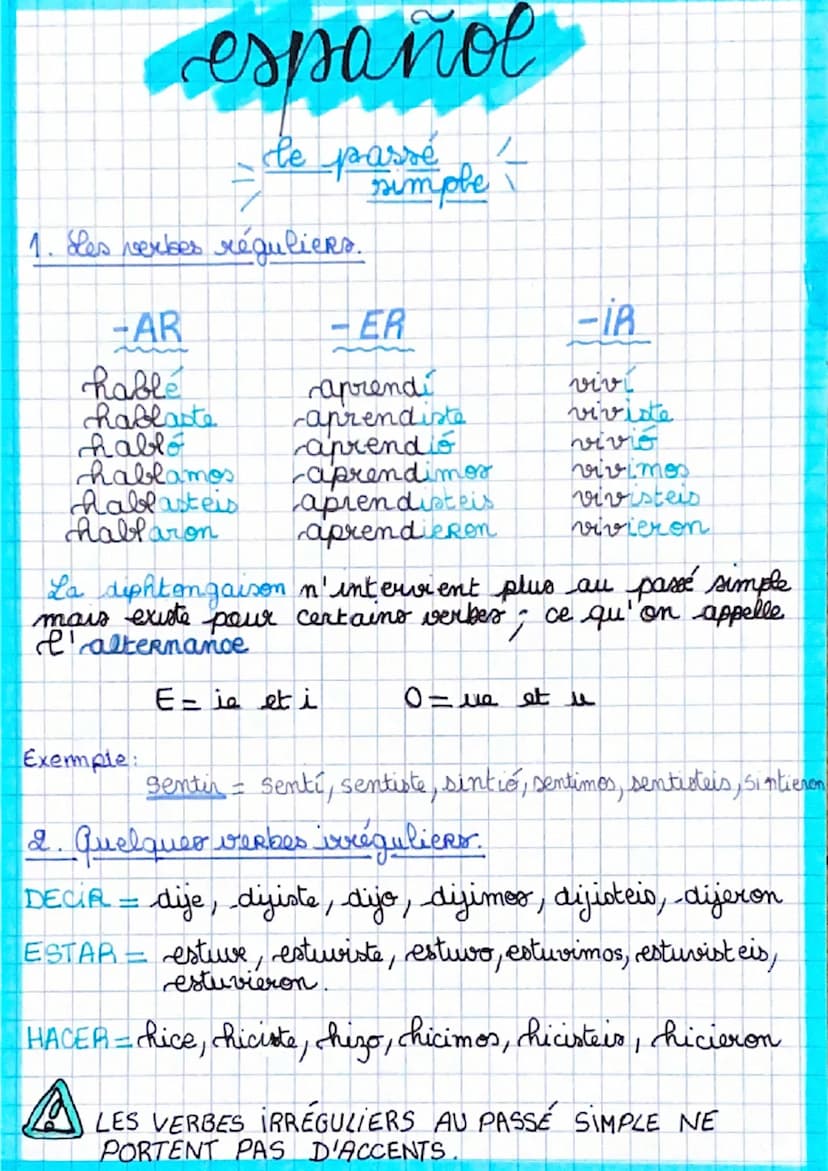 español
le passé
simple
1. Les verbes réguliers.
-AR -ER -IR
hablé aprendí viví
hablaste aprendiste viviste
habló aprendió vivió
hablamos aprendimos vivimos
hablasteis aprendisteis vivisteis
hablaron aprendieron vivieron
La diphtongaison n'intervient plus au passé simple
mais existe pour certains verbes ; ce qu'on appelle
l'alternance
E = ie et i O = ue et u
Exemple :
sentir = sentí, sentiste, sintió, sentimos, sentisteis, sintieron
2. Quelques verbes irréguliers.
DECIR = dije, dijiste, dijo, dijimos, dijisteis, dijeron
ESTAR = estuve, estuviste, estuvo, estuvimos, estuvisteis,
estuvieron.
HACER = hice, hiciste, hizo, hicimos, hicisteis, hicieron
LES VERBES IRRÉGULIERS AU PASSÉ SIMPLE NE
PORTENT PAS D'ACCENTS.